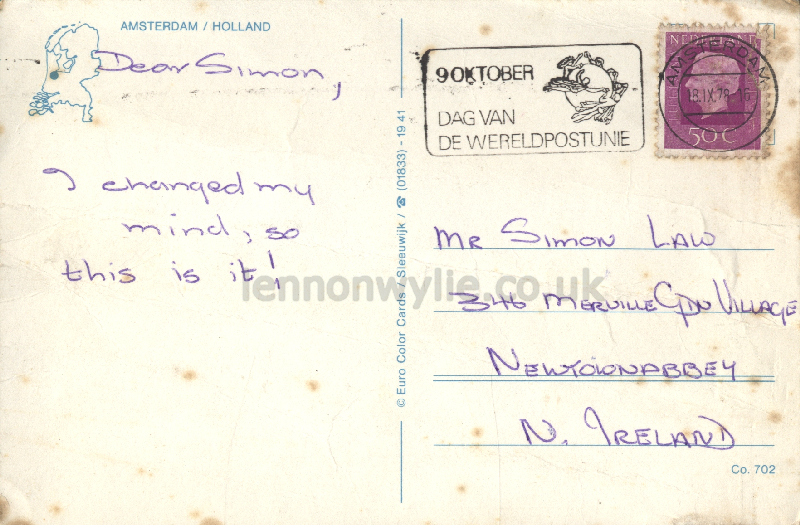 AMSTERDAM / HOLLAND
Dear Simon,
I changed my
mind, so
this is it!
© Euro Color Cards / Sleeuwijk / ☎ (01833) - 19 41
9 OKTOBER
DAG VAN
DE WERELDPOSTUNIE
NEDERLAND
AMSTERDAM
50 C
MR SIMON LAW
346 MERVILLE GDN VILLAGE
NEWTOWNABBEY
N. IRELAND
Co. 702
lennonwylie.co.uk